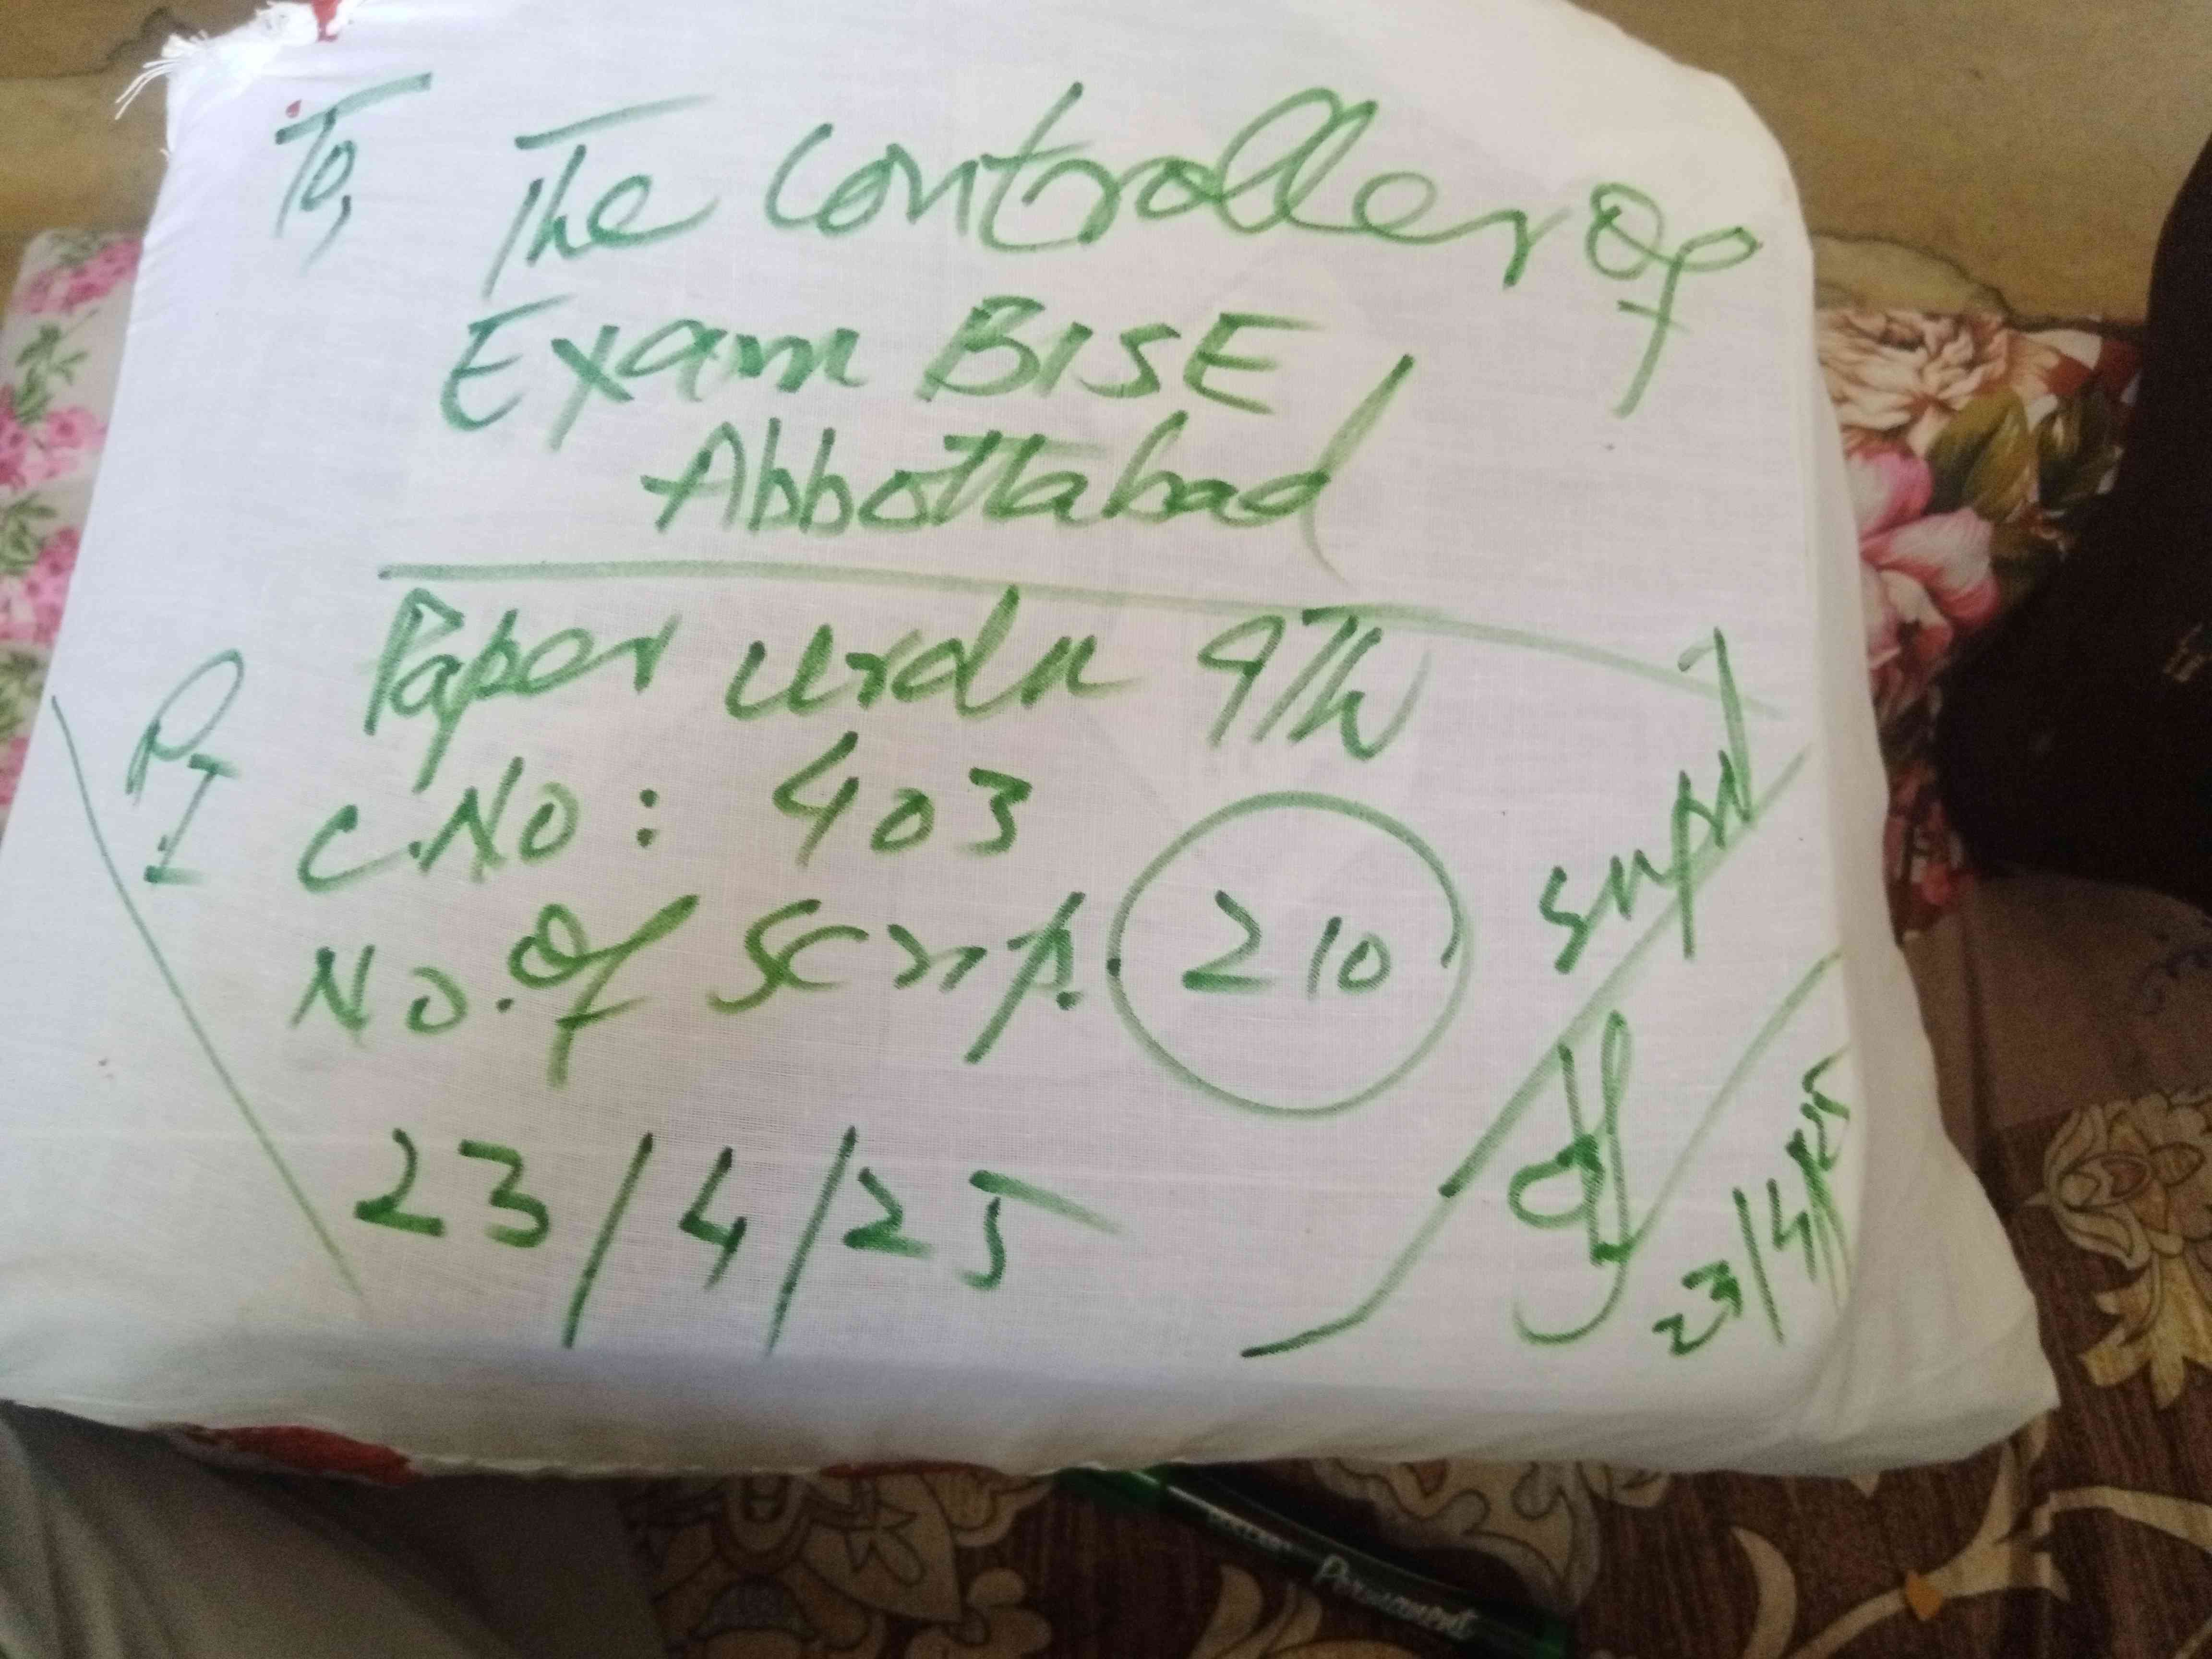 To, The Controller Of
Exam BISE
Abbottabad
Paper Urdu 9Th
P
I
C.No: 403
No. Of Scrip. 210
23/4/25
Supdt
23/4/25
Permanent